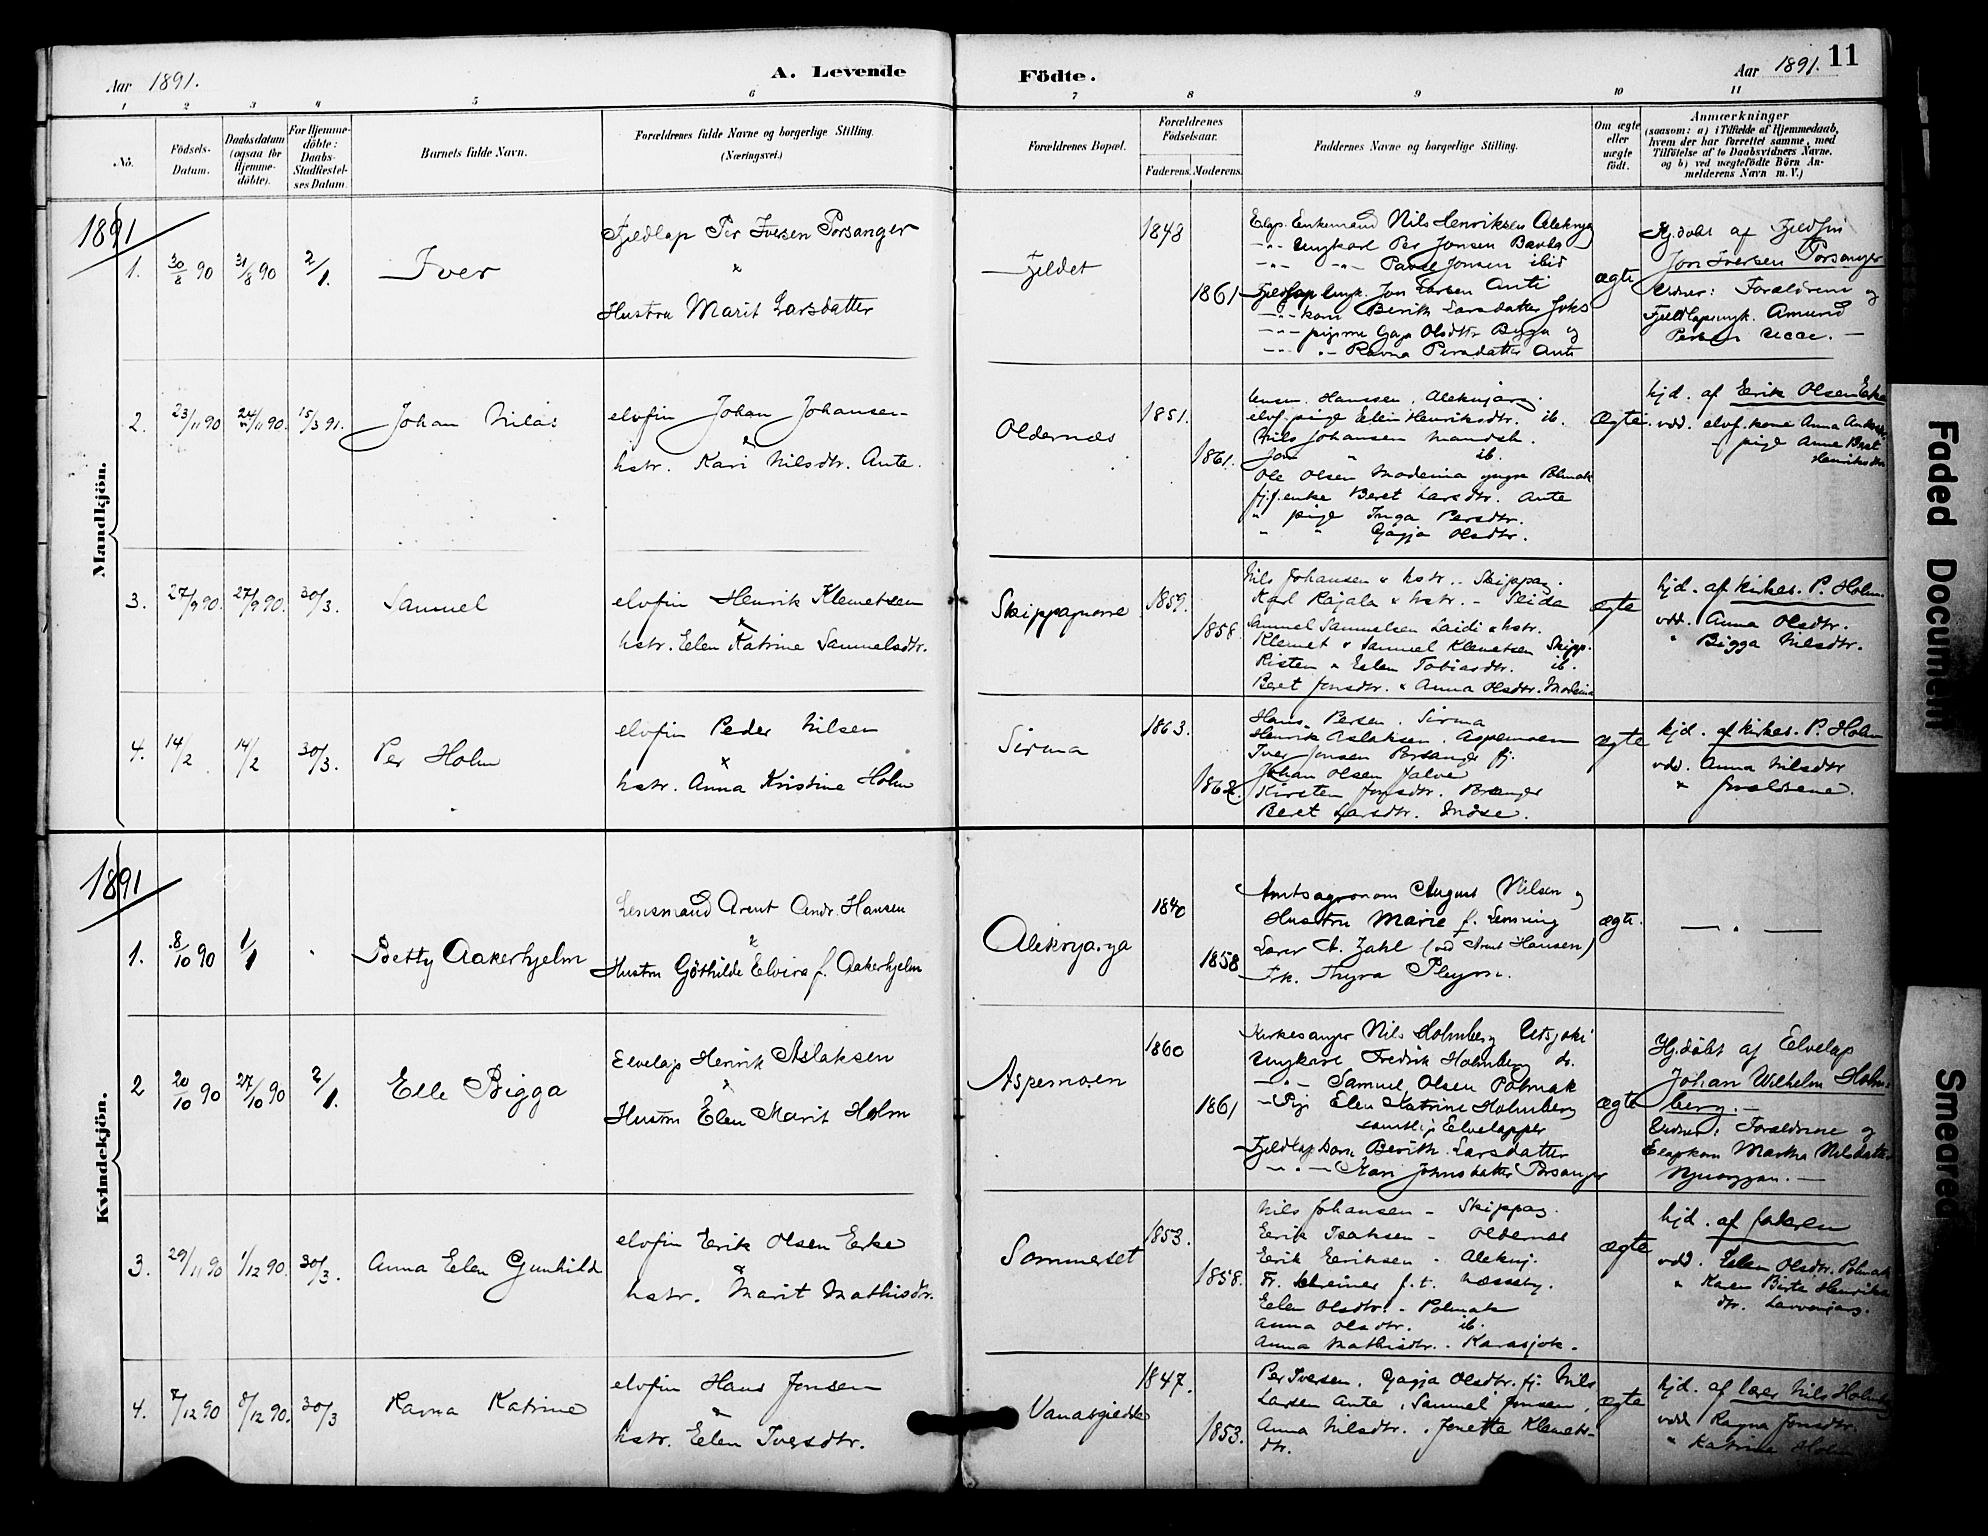 Aar 1891.
A. Levende
Födte.
Aar 1891.
11
1 2 3 4 5 6 7 8 9 10 11
No.
Födsels-
Datum.
Daabsdatum
(ogsaa for
Hjemme-
döbte).
For Hjemme-
döbte:
Daabs-
Stadfæstel-
ses Datum.
Barnets fulde Navn.
Forældrenes fulde Navne og borgerlige Stilling.
(Næringsvei.)
Forældrenes Bopæl.
Forældrenes
Födselsaar.
Faderens. Moderens.
Faddernes Navne og borgerlige Stilling.
Om ægte
eller
uægte
födt.
Anmærkninger
(saasom: a) i Tilfælde af Hjemmedaab,
hvem der har forrettet samme, med
Tilföielse af to Daabsvidners Navne,
og b) ved uægtefödte Börn An-
melderens Navn m. V.)
Mandkjön.
1891
1.
30/8 90
31/8 90
2/1.
Iver
Fjeldlap Per Iversen Porsanger
Hustru Marit Larsdatter
Fjeldet
1848
1861
Elvp. Enkemand Nils Henriksen Aleknjarg
-"- Ungkarl Per Jonsen Bavla
-"- -"- Pavel Jonsen ibid
Fjeldlap Ungk. Jon Larsen Anti
-"- kone Berith Larsdatter Joks
-"- pigerne Gaga Olsdtr Bigga og
-"- "- Ravna Persdatter Anti
ægte
Hj.döbt af Fjeldfin
Jon Iversen Porsanger
Vidner: Forældrene og
Fjeldlapungk. Amund
Persen Ucce. —
2.
23/11 90
24/11 90.
15/3 91.
Johan Nilas
elvfin Johan Johansen
&
hstr. Kari Nilsdtr. Ante.
Oldernæs
1851.
1861.
Hanssen. Aleknjarg.
elvf. pige Elen Henriksdtr. ib.
Nils Johansen Mandsh.
Jon " ib.
Ole Olsen Modeina yngre Polmak
fj.f. enke Beret Larsdtr. Ante
" pige Inga Persdtr.
" " Gagja Olsdtr.
Ægte.
hjd. af Eerik Olsen Erke
vdd. elvf. kone Anna
- pige Anne Beret
Henriksdtr
3.
27/9 90.
27/9 90.
30/3.
Samuel
elvfin Henrik Klemetsen
&
hstr. Elen Katrine Samuelsdtr.
Skippagurre
1859.
1858.
Nils Johansen & hstr. - Skippag.
Karl Rajala & hstr. - Seida
Samuel Samuelsen Laiti & hstr.
Klemet & Samuel Klemetsen Skipp.
Risten & Eelen Tobiasdtr. ib.
Beret Jonsdtr. & Anna Olsdtr. Modeina
ægte
hjd. af kirkes. P. Holm.
vdd. Anna Olsdtr.
" Bigga Nilsdtr.
4.
14/2
14/2
30/3.
Per Holm
elvfin Peder Nilsen
&
hstr. Anna Kristine Holm
Sirma
1863.
1862.
Hans Persen. Sirma
Henrik Aslaksen. Aspemoen
Iver Jonsen Porsanger fj.
Johan Olsen Jalve
Kirsten Jonsdtr. Pranger
Beret Larsdtr. Indse.
ægte
hjd. af kirkes. P. Holm
vdd. Anna Nilsdtr
" forældrene.
Kvindekjön.
1891
1.
8/10 90
1/1
Betty Aakerhjelm
Lensmand Arent Andr. Hansen
&
Hustru Göthilde Elvira f. Aakerhjelm
Aleknjarga
1840
1858
Amtsagronom August Nilsen og
Hustru Marie f. Lemming
Lærer A. Zahl (ved Arent Hansen)
Frk. Thyra Pleym.
ægte.
— . —
2
20/10 90
27/10 90
2/1.
Elle Bigga
Elvelap Henrik Aslaksen
&
Hustru Elen Marit Holm
Aspemoen
1860
1861
Kirkesanger Nils Holmberg Utsjoki
Ungkarl Fredrik Holmberg do.
-"- Samuel Olsen Polmak
- Pige Elen Katrine Holmberg
samtlige Elvelapper
Fjeldlap kone Berith Larsdatter
-"-"- Kari Johnsdatter Porsanger
ægte
Hj.döbt af Elvelap
Johan Wilhelm Holm-
berg. —
Vidner: Forældrene og
Elvlapkone Martha Nilsdatter
3.
29/11 90
1/12 90.
30/3.
Anna Elen Gunhild
elvfin Eerik Olsen Erke
&
hstr. Marit Mathisdtr.
Sommerset
1853.
1858.
Nils Johansen - Skippag.
Eerik Isaksen - Oldernæs
Eerik Eeriksen - Aleknj.
Fr. Schreiner f.t. Næsseby.
Eelen Olsdtr. - Polmak
Anna Olsdtr. ib.
Anna Mathisdtr. - Karasjok.
ægte
hjd. af faderen
vdd. Eelen Olsdtr. Polmak
" Karen Birte Henriks-
dtr. Levvonjarg.
4.
7/12 90
8/12 90.
30/3
Ravna Katrine
elvfin Hans Jonsen
&
hstr. Eelen Iversdtr.
Vanasgiedde
1847.
1853.
Per Iversen. Gagja Olsdtr. fj. Nils
Larsen Ante, Samuel Jonsen,
Anna Nilsdtr. Jenette Klemets-
dtr.
ægte
hjd. af lærer Nils Holmb
vdd. Ragna Jonsdtr.
" Katrina Holm
Faded Document
Smeared